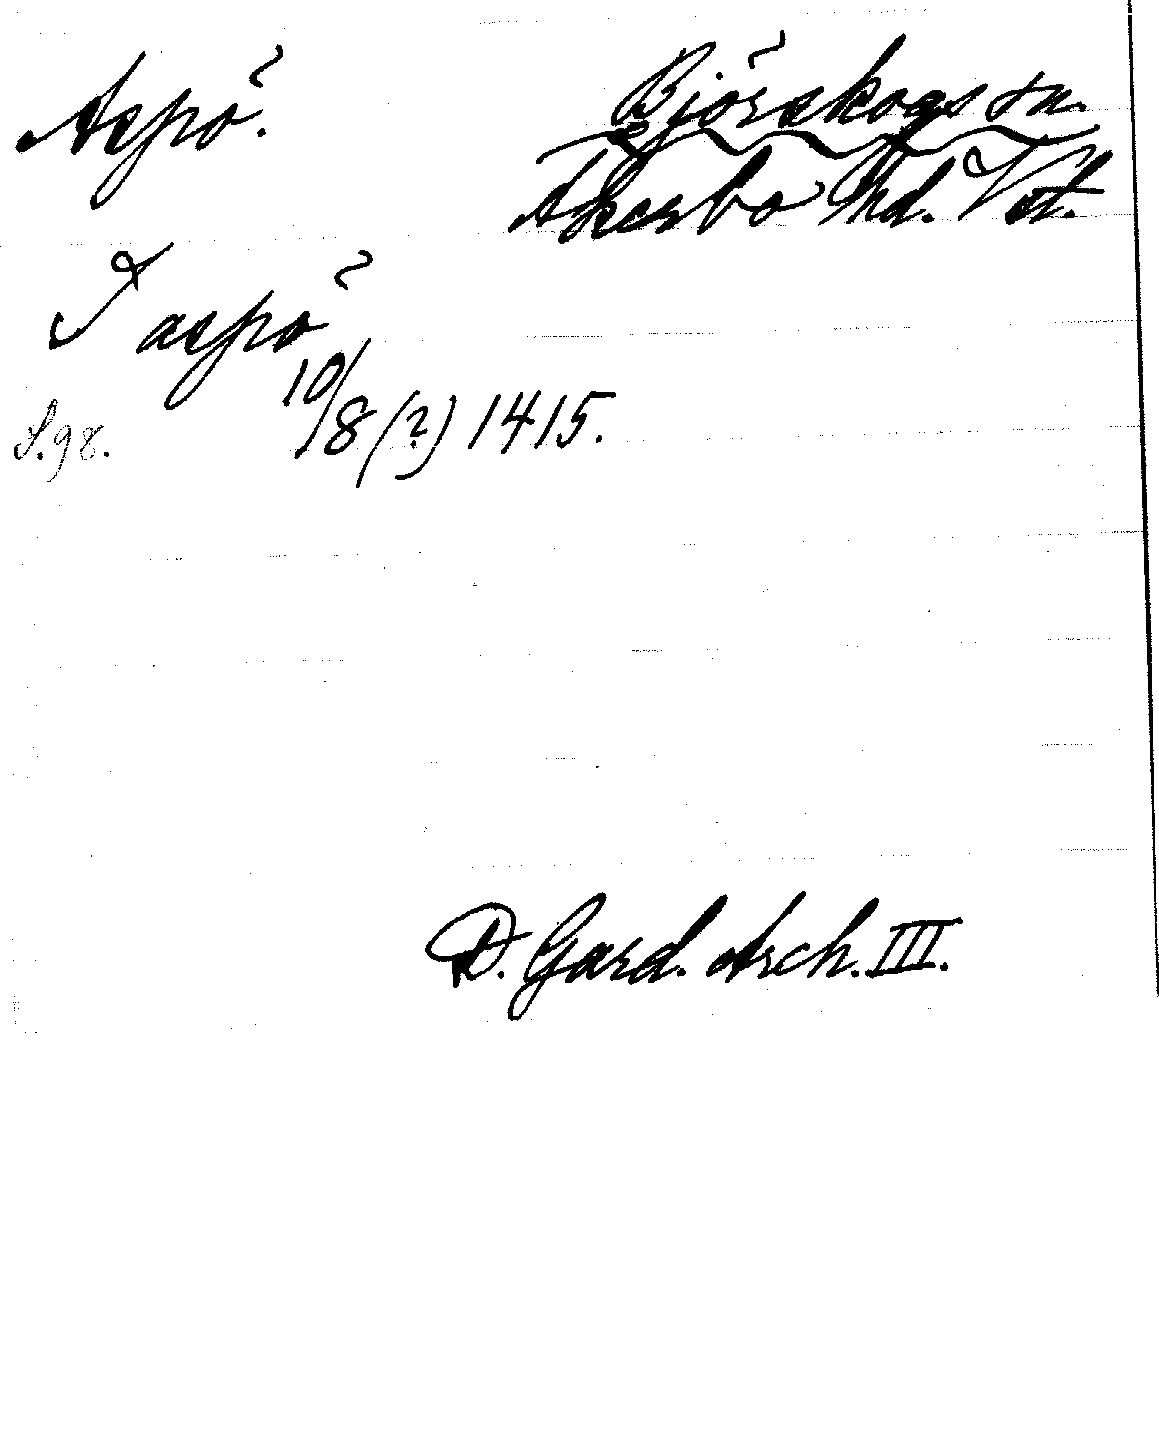 Aspö.
Björskogs sn.
Åkerbo hd. Vstl.
I aspö
10/8 (?) 1415.
S. 98.
D. Gard. Arch. III.